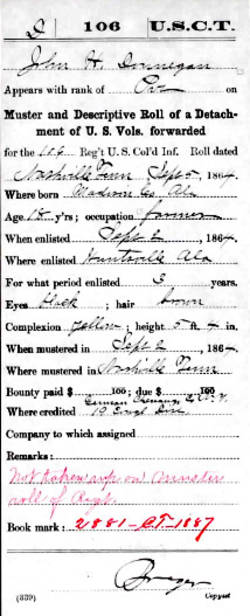 D 106 U.S.C.T.
John H. Dunnegan
Appears with rank of Pvt on
Muster and Descriptive Roll of a Detach-
ment of U. S. Vols. forwarded
for the 106 Reg't U.S. Col'd Inf. Roll dated
Nashville Tenn Sept 5, 1864.
Where born Madison Co. Ala
Age 18 y'rs; occupation farmer
When enlisted Sept 2, 1864.
Where enlisted Huntsville Ala
For what period enlisted 3 years.
Eyes black; hair brown
Complexion yellow; height 5 ft. 4 in.
When mustered in Sept 2, 1864
Where mustered in Nashville Tenn
Bounty paid $ 100; due $ 100
Where credited 19 Congl Dist
Company to which assigned
Remarks:
Not taken up on muster
roll of Regt.
Book mark: 2881-CT-1887
(339) Copyist